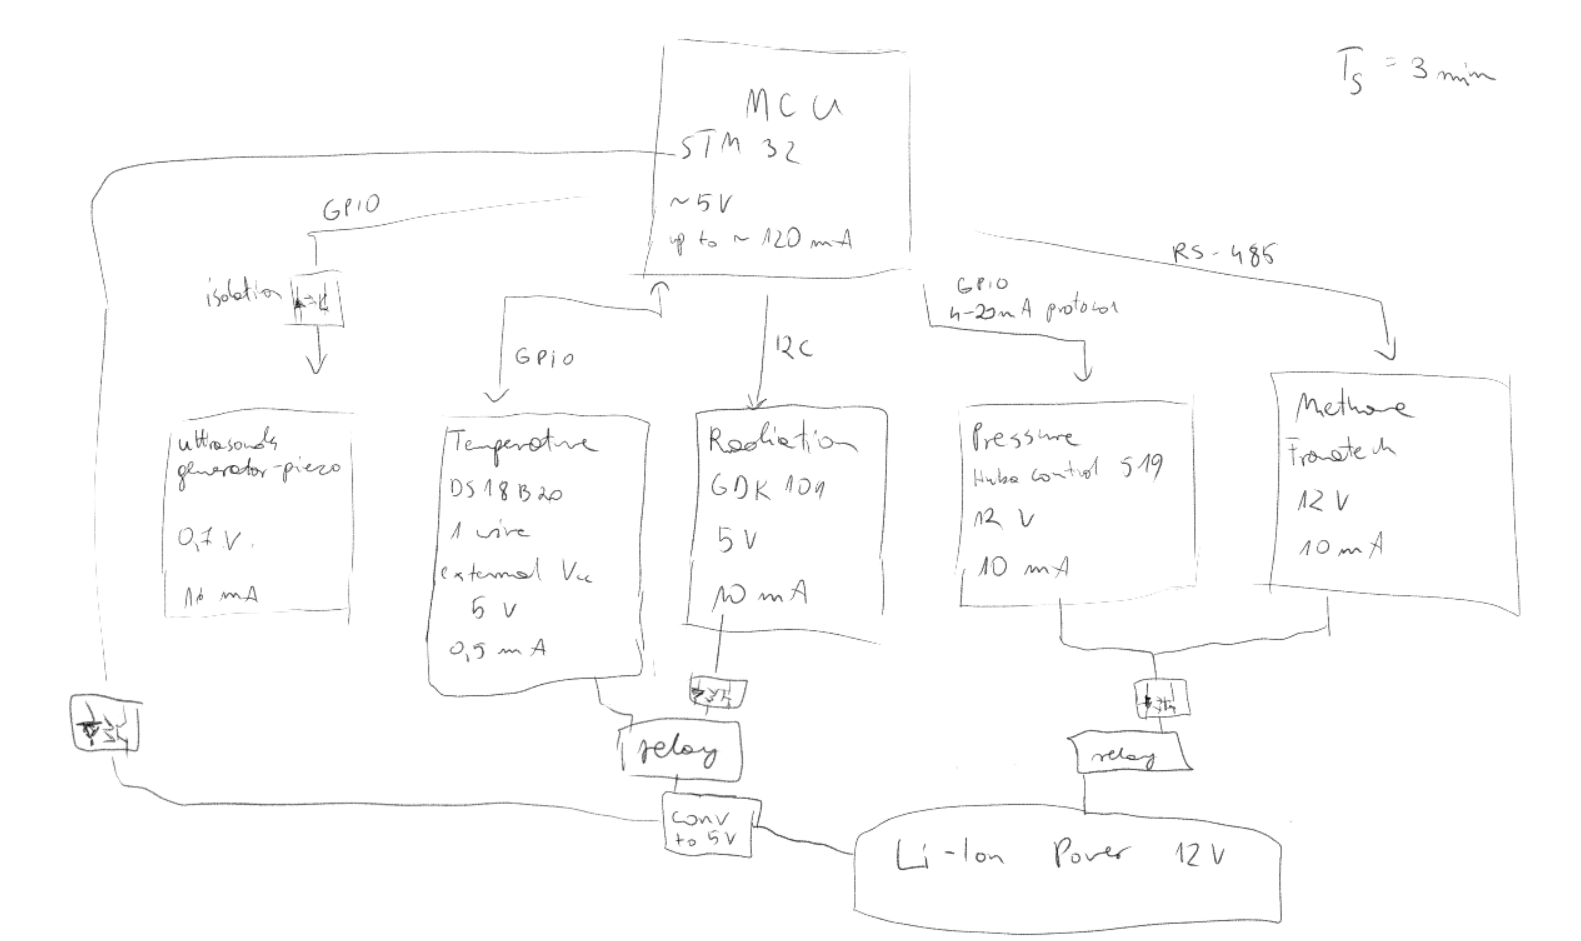 Ts = 3 min
MCU
STM 32
~5V
up to ~ 120 mA
GPIO
isolation
GPIO
I2C
GPIO
4-20mA protocol
RS-485
ultrasounds
generator-piezo
0,7 V.
mA
Temperature
DS18B20
1 wire
external Vcc
5 V
0,5 mA
Radiation
GDK 101
5V
10 mA
Pressure
Huba control 519
12 V
10 mA
Methane
Franatech
12 V
10 mA
relay
conv
to 5V
relay
Li-Ion Power 12V